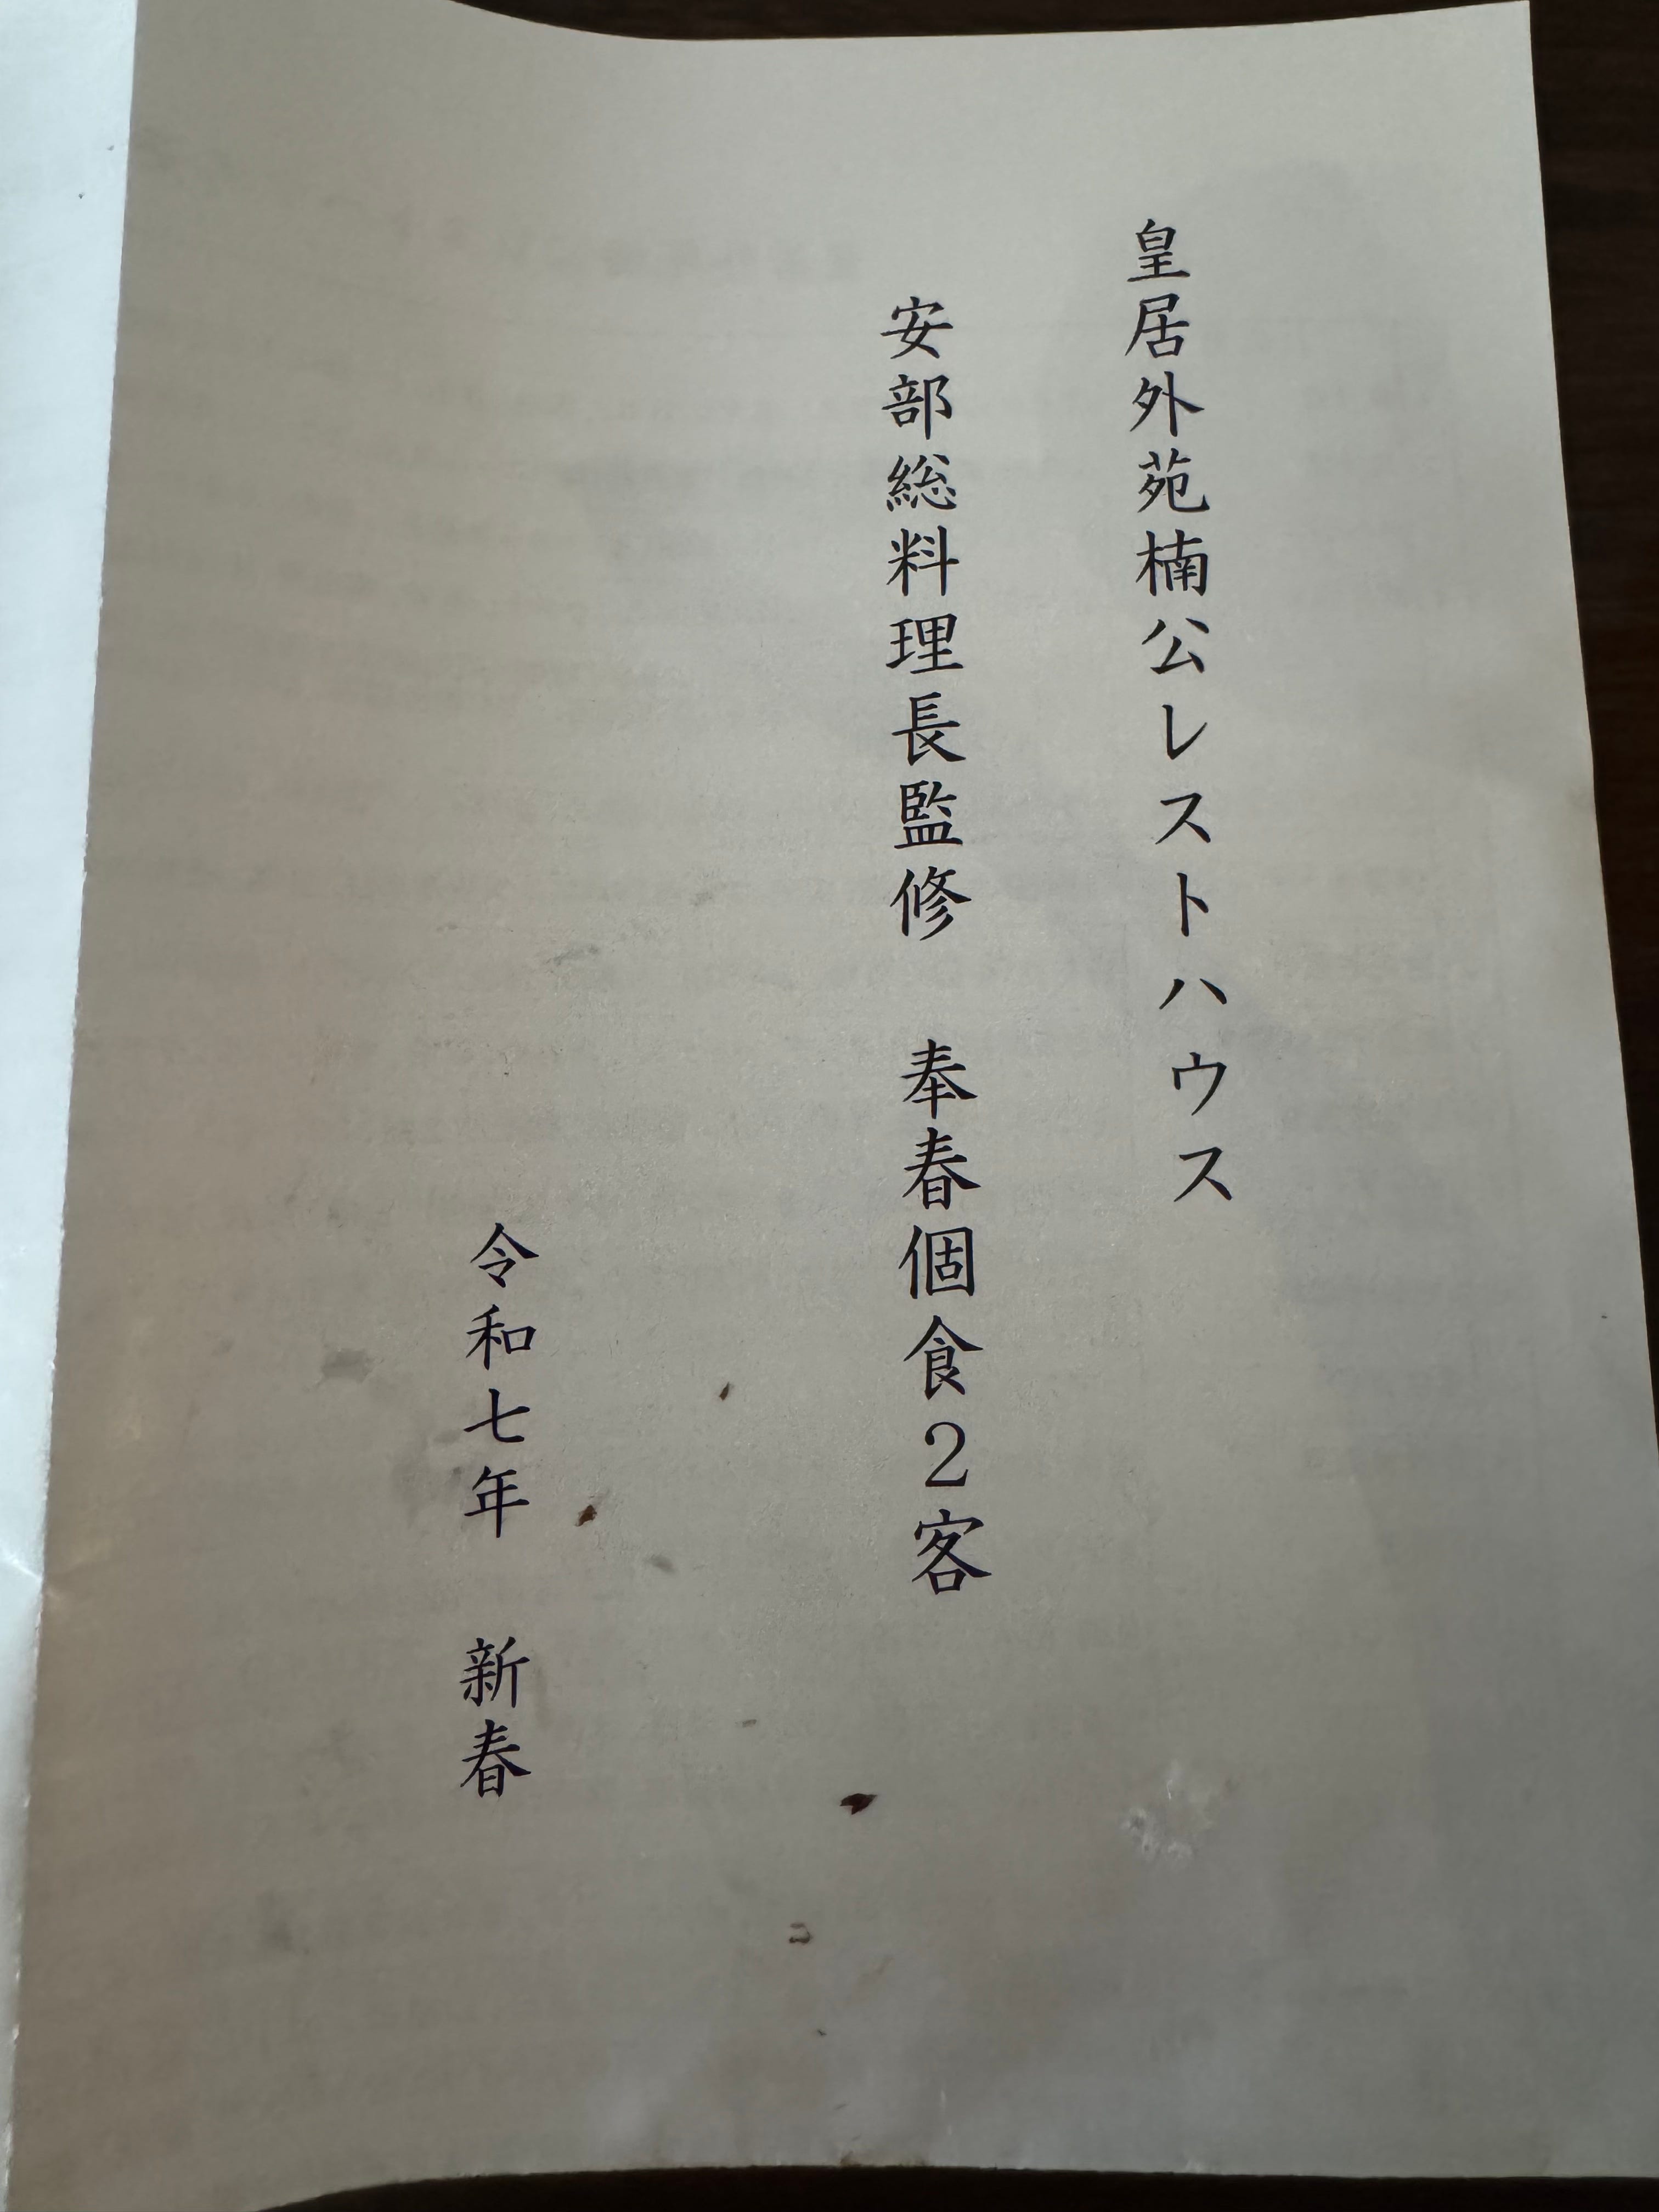 皇居外苑楠公レストハウス
安部総料理長監修　奉春個食2客
令和七年　新春